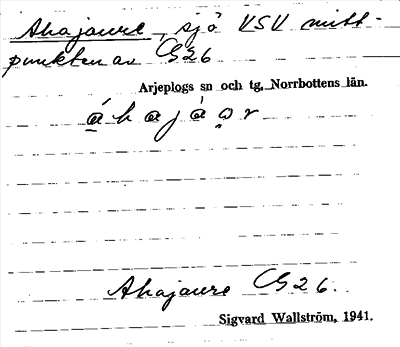 Ahajaure, sjö VSV mitt-
punkten av G26
Arjeplogs sn och tg, Norrbottens län.
á̱hajáo̱r
Ahajaure G26.
Sigvard Wallström, 1941.